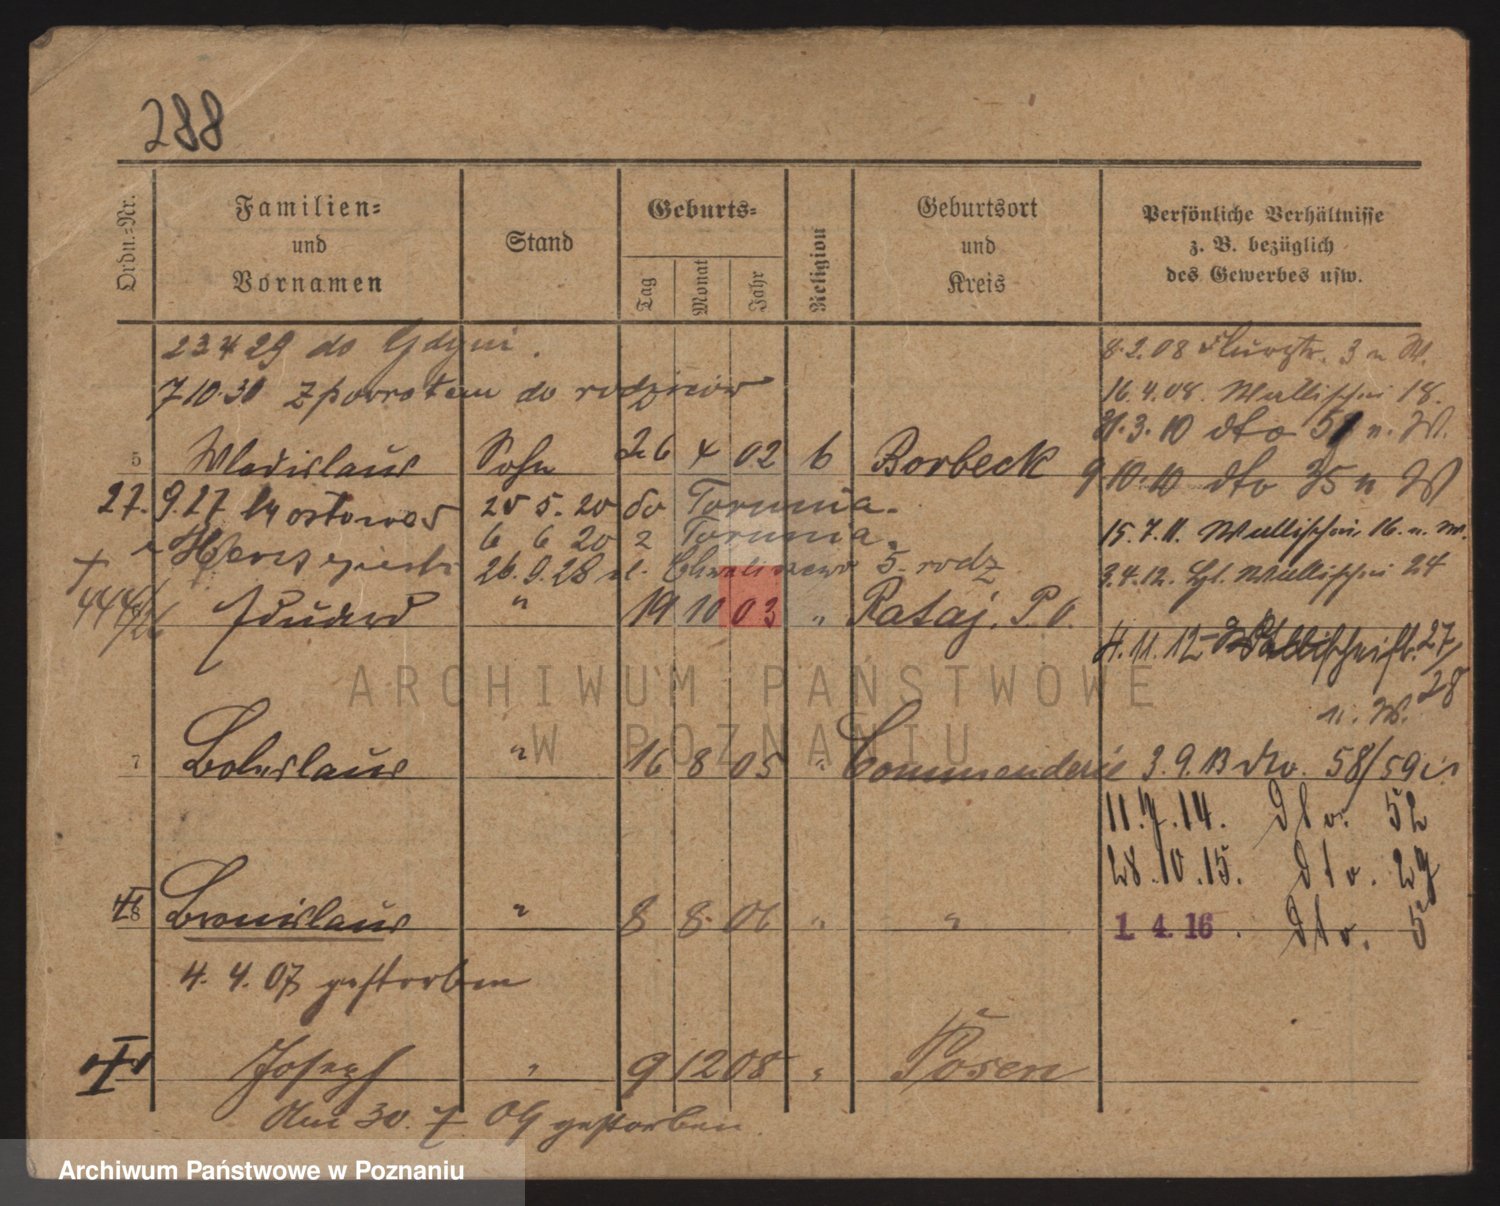 288
Ordn.=Nr.
Familien= und Vornamen
Stand
Geburts=
Tag
Monat
Jahr
Religion
Geburtsort und Kreis
Persönliche Verhältnisse z. B. bezüglich des Gewerbes usw.
23 4 29 do Gdyni.
8.2.08 Flurstr. 3 n W.
7 10.30 z powrotem do rodziców
16.4.08. Wallischei 18.
31.3.10 dto 51 n. W.
5 Wladislaus Sohn 26 4 02 6 Borbeck
9 10.10 dto 35 n W
27. 9.27 25 5. 20 do Torunia.
15.7.11. Wallischei 16. n. W.
6 6 20 z Torunia.
26. 9. 28 ul. Chwaliszewo 5. rodz
3.4.12. Wallischei 24
Eduard " 19 10 03 " Rataj. P. O.
4.11.12 Wallischei 27/28
n. W.
7 Boleslaus " 16 8 05 " Commenderie
3.9.13 dto. 58/59
11.7.14. dto. 52
28.10.15. dto. 29
8 Bronislaus " 8 8. 06 " "
1. 4. 16. dto. 5
4. 4. 07 gestorben
Joseph " 9 12 08 " Posen
Am 30. 7 09 gestorben.
ARCHIWUM PAŃSTWOWE
W POZNANIU
Archiwum Państwowe w Poznaniu